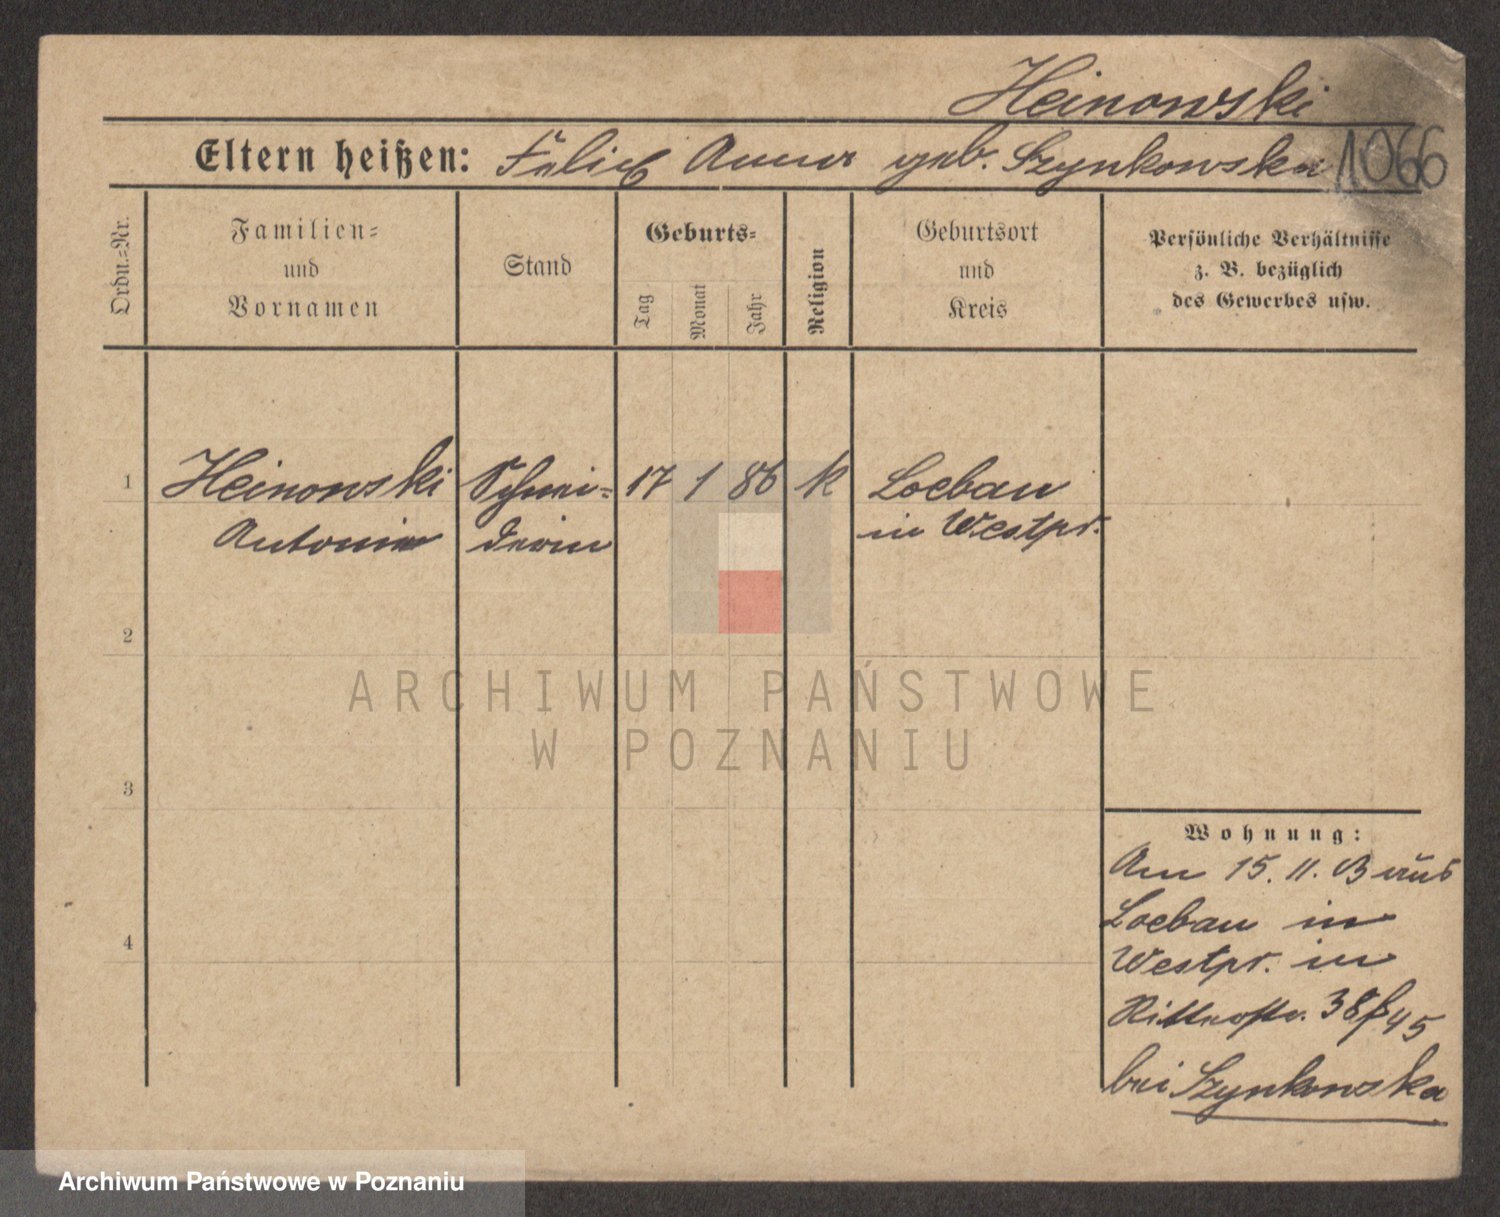 Heinowski
Eltern heißen: Felix Anna geb. Szynkowska 1066
Ordn.-Nr.
Familien-
und
Vornamen
Stand
Geburts-
Tag
Monat
Jahr
Religion
Geburtsort
und
Kreis
Persönliche Verhältnisse
z. B. bezüglich
des Gewerbes usw.
1 Heinowski Schnei- 17 1 86 k Loebau
Antonie derin in Westpr.
2
ARCHIWUM PAŃSTWOWE
W POZNANIU
3
Wohnung:
Am 15. 11. 13 aus
Loebau in
4
Westpr. in
Ritterstr. 38 45
bei Szynkowska
Archiwum Państwowe w Poznaniu